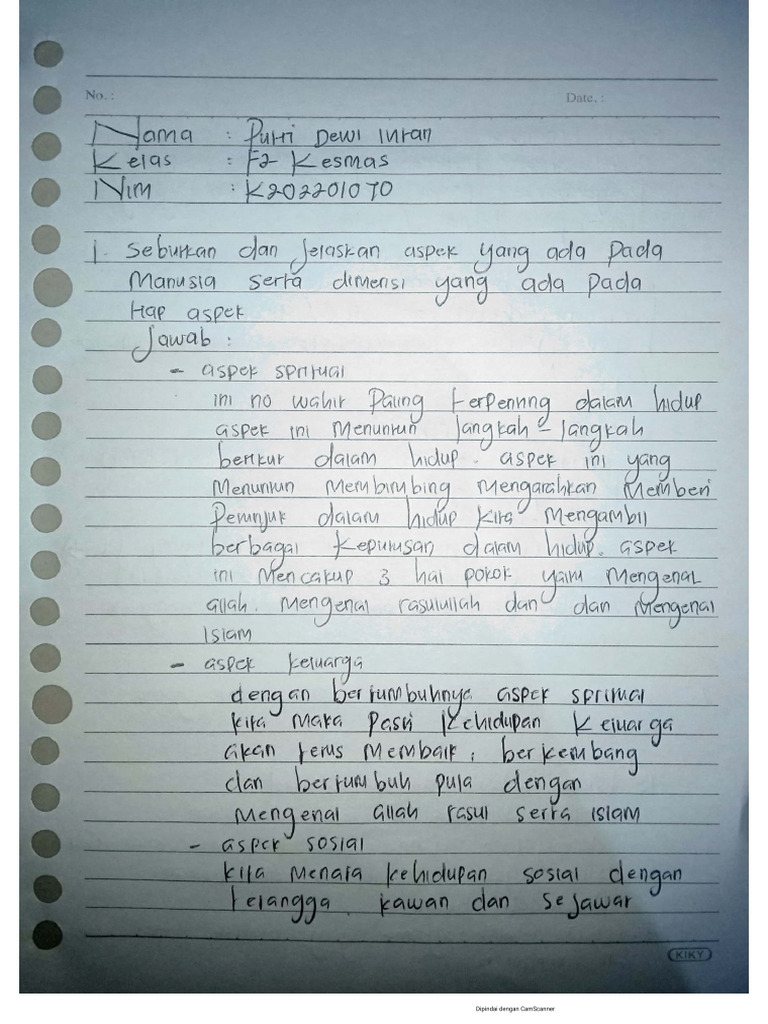 No. :
Date. :
Nama : Putri Dewi Intan
Kelas : F2 Kesmas
Nim : K202201070
1. Seburkan dan jelaskan aspek yang ada pada
Manusia serta dimensi yang ada pada
tiap aspek
Jawab :
- aspek spritual
ini no wahit Paling terpenting dalam hidup
aspek ini Menuntun langkah - langkah
berikut dalam hidup. aspek ini yang
Menuntun Membimbing Mengarahkan Memberi
Petunjuk dalam hidup kita Mengambil
berbagai Keputusan dalam hidup. aspek
ini Mencakup 3 hal pokok yaitu Mengenal
allah. Mengenal rasulullah dan dan Mengenal
Islam
- aspek keluarga
dengan bertumbuhnya aspek spritual
kita maka Pasti Kehidupan Keluarga
akan terus Membaik, berkembang
dan bertumbuh pula dengan
Mengenal allah rasul serta islam
- aspek sosial
kita Menata kehidupan sosial dengan
tetangga. kawan dan sejawat
KIKY
Dipindai dengan CamScanner